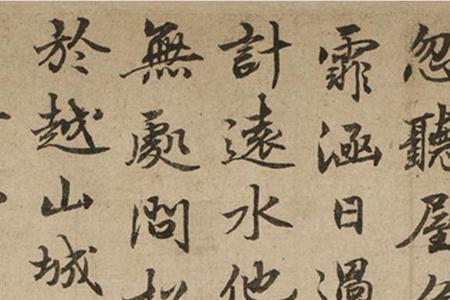 忽聽屋
霏涵日
計遠水他
無處問
於越山城